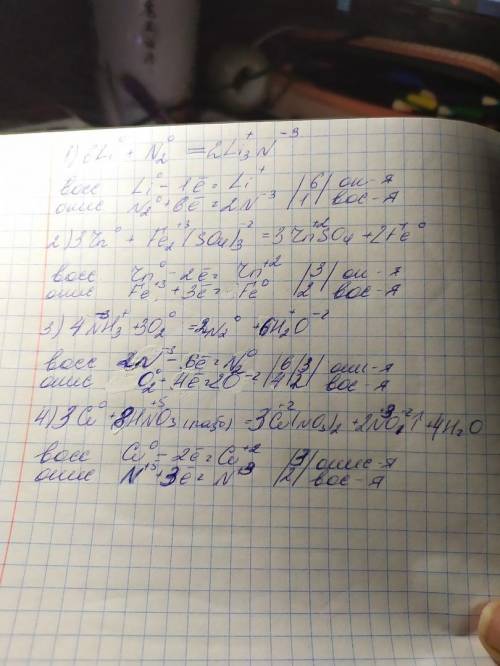 1) 6Li⁰ + N₂⁰ = 2Li₃⁺N⁻³
восс Li⁰ - 1ē = Li⁺ |6| ок-я
окис N₂⁰ + 6ē = 2N⁻³ |1| вос-я
2) 3Zn⁰ + Fe₂⁺³(SO₄)₃⁻² = 3Zn⁺²SO₄ + 2Fe⁰
восс Zn⁰ - 2ē = Zn⁺² |3| ок-я
окис Fe⁺³ + 3ē = Fe⁰ |2| вос-я
3) 4N⁻³H₃⁺ + 3O₂⁰ = 2N₂⁰ + 6H₂⁺O⁻²
восс 2N⁻³ - 6ē = N₂⁰ |6|3| окис-я
окис O₂⁰ + 4ē = 2O⁻² |4|2| вос-я
4) 3Cu⁰ + 8HN⁺⁵O₃ = 3Cu⁺²(NO₃)₂ + 2NO↑ + 4H₂O
восс Cu⁰ - 2ē = Cu⁺² |3| окис-я
окис N⁺⁵ + 3ē = N⁺³ |2| вос-я